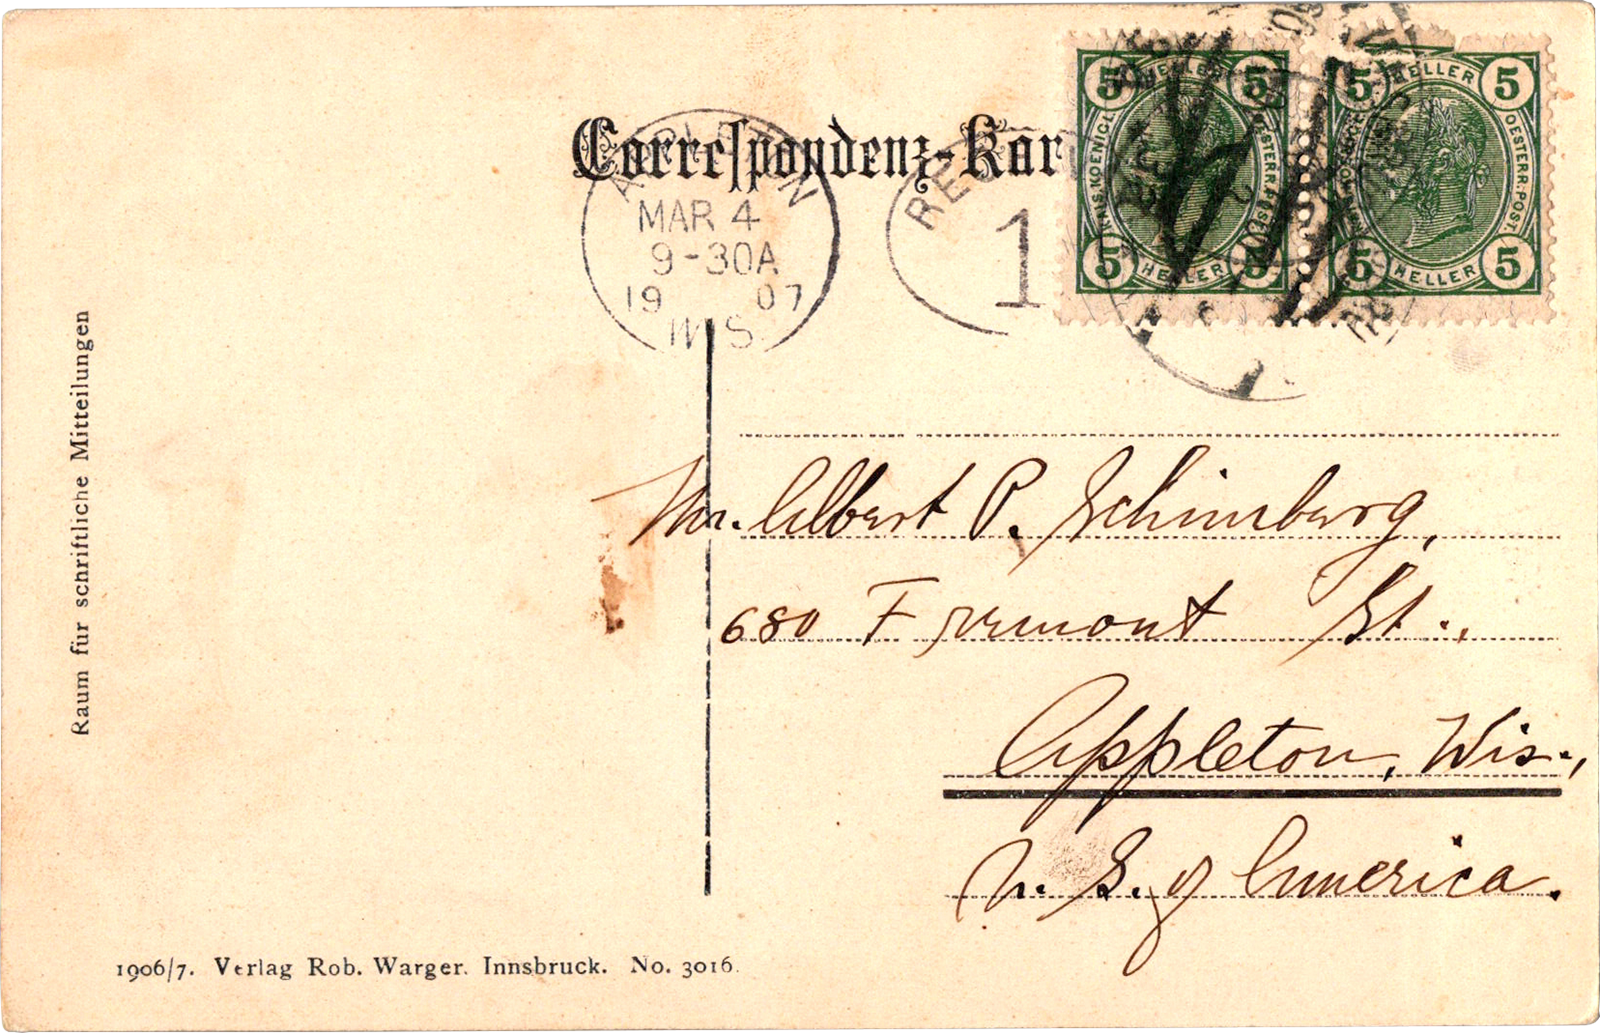 Correspondenz-Kar
APPLETON
MAR 4
9-30A
19 07
WIS
REC
1
5 HELLER 5
5 HELLER 5
5 HELLER 5
OESTERR.POST.
5 HELLER 5
Raum für schriftliche Mitteilungen
Mr. Albert P. Schimberg,
680 Fremont St.,
Appleton, Wis.,
U. S. of America.
1906/7. Verlag Rob. Warger. Innsbruck. No. 3016.